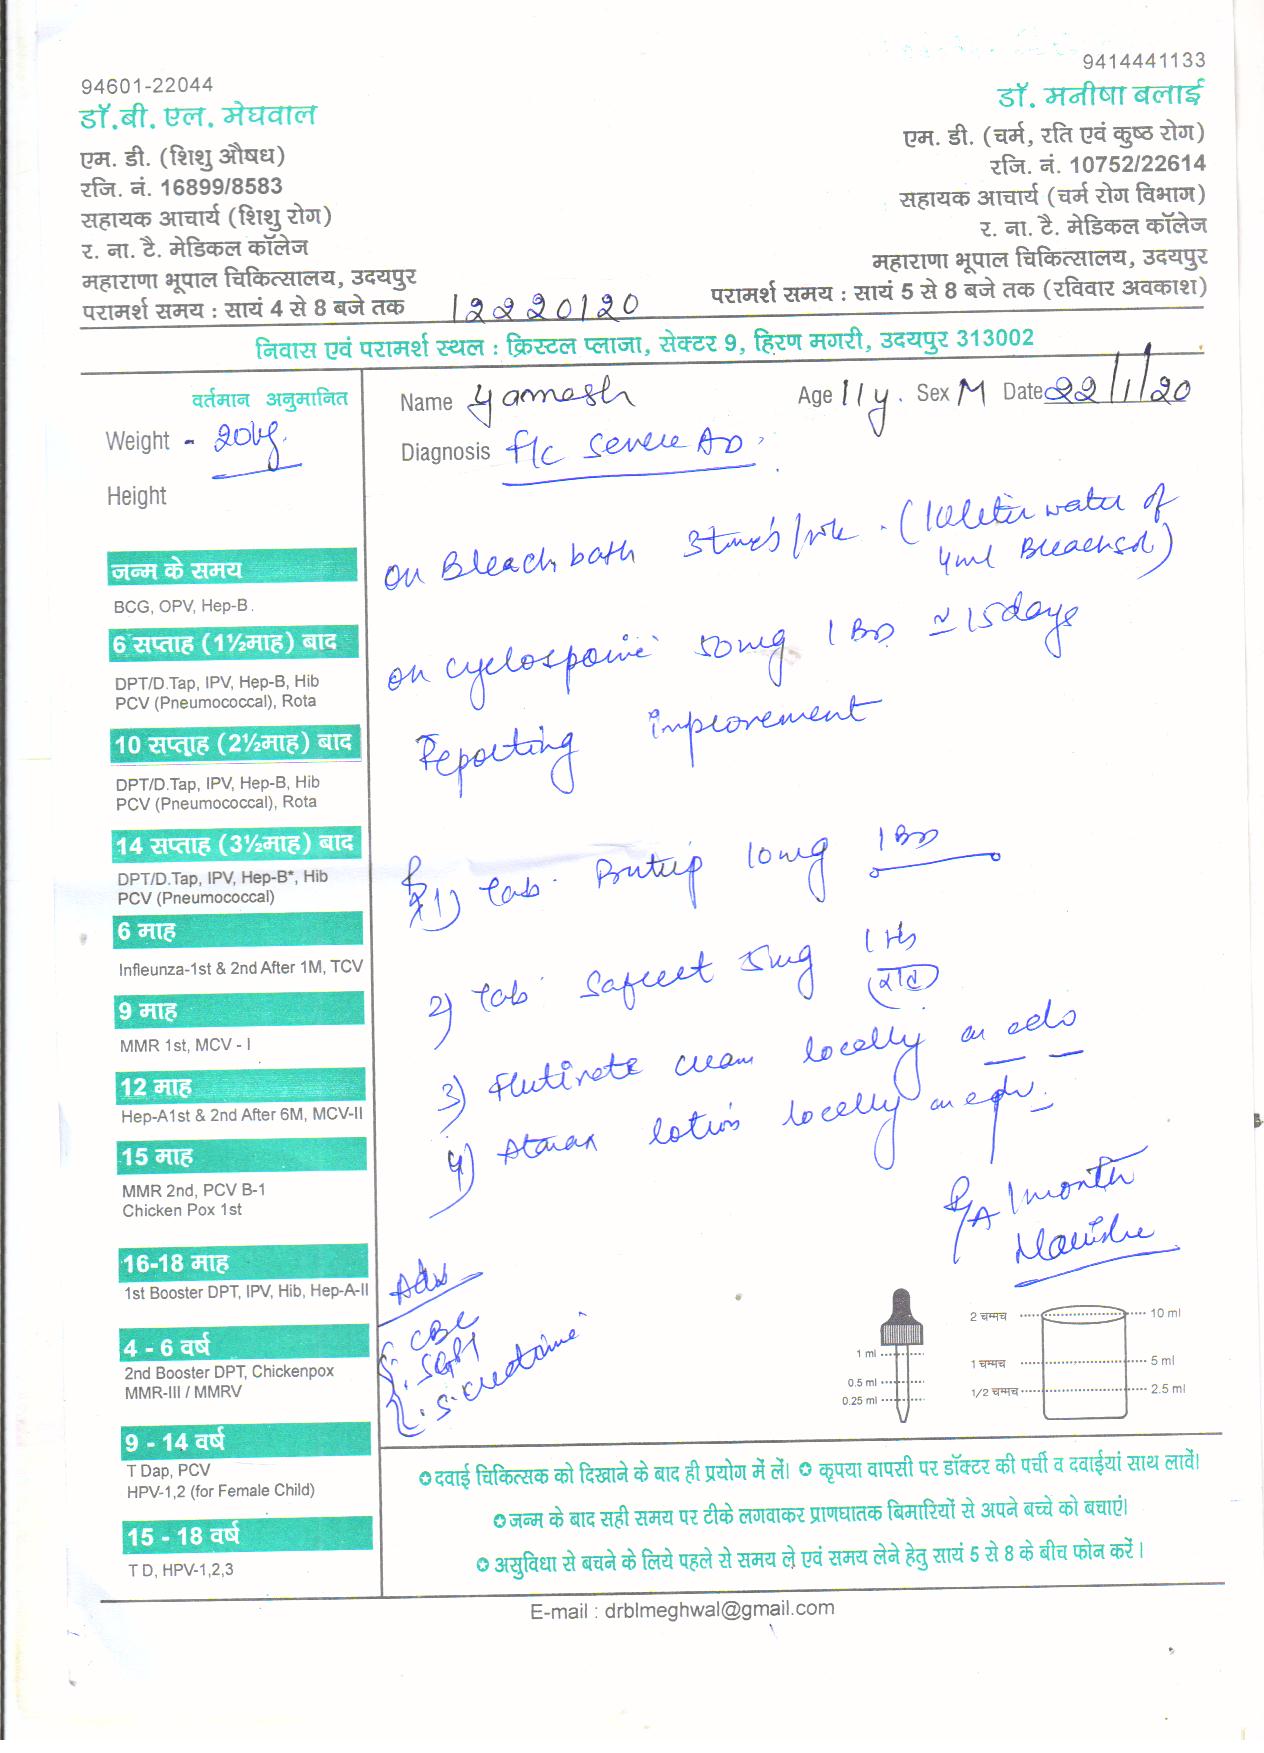 94601-22044
डॉ.बी. एल. मेघवाल
एम. डी. (शिशु औषध)
रजि. नं. 16899/8583
सहायक आचार्य (शिशु रोग)
र. ना. टै. मेडिकल कॉलेज
महाराणा भूपाल चिकित्सालय, उदयपुर
परामर्श समय : सायं 4 से 8 बजे तक
9414441133
डॉ. मनीषा बलाई
एम. डी. (चर्म, रति एवं कुष्ठ रोग)
रजि. नं. 10752/22614
सहायक आचार्य (चर्म रोग विभाग)
र. ना. टै. मेडिकल कॉलेज
महाराणा भूपाल चिकित्सालय, उदयपुर
परामर्श समय : सायं 5 से 8 बजे तक (रविवार अवकाश)
12220120
निवास एवं परामर्श स्थल : क्रिस्टल प्लाजा, सेक्टर 9, हिरण मगरी, उदयपुर 313002
वर्तमान अनुमानित
Weight - 20kg.
Height
जन्म के समय
BCG, OPV, Hep-B.
6 सप्ताह (1½माह) बाद
DPT/D.Tap, IPV, Hep-B, Hib
PCV (Pneumococcal), Rota
10 सप्ताह (2½माह) बाद
DPT/D.Tap, IPV, Hep-B, Hib
PCV (Pneumococcal), Rota
14 सप्ताह (3½माह) बाद
DPT/D.Tap, IPV, Hep-B*, Hib
PCV (Pneumococcal)
6 माह
Infleunza-1st & 2nd After 1M, TCV
9 माह
MMR 1st, MCV - I
12 माह
Hep-A1st & 2nd After 6M, MCV-II
15 माह
MMR 2nd, PCV B-1
Chicken Pox 1st
16-18 माह
1st Booster DPT, IPV, Hib, Hep-A-II
4 - 6 वर्ष
2nd Booster DPT, Chickenpox
MMR-III / MMRV
9 - 14 वर्ष
T Dap, PCV
HPV-1,2 (for Female Child)
15 - 18 वर्ष
T D, HPV-1,2,3
Name Yamesh Age 11y. Sex M Date 22/1/20
Diagnosis f/c severe AD
on Bleach bath 3times/ (10 liter water of
4ml Bleachsol)
on cyclosporine 50mg 1 BD 15days
Reporting improvement
1) Tab. 10mg 1 BD
2) Tab. 5mg 1 HS
(रात)
3) Flutivate cream locally on
4) Atarax lotion locally on
R/A 1 month
Adv
CBC
SGPT
S. creatinine
1 ml
0.5 ml
0.25 ml
2 चम्मच 10 ml
1 चम्मच 5 ml
1/2 चम्मच 2.5 ml
✪ दवाई चिकित्सक को दिखाने के बाद ही प्रयोग में लें। ✪ कृपया वापसी पर डॉक्टर की पर्ची व दवाईयां साथ लावें।
✪ जन्म के बाद सही समय पर टीके लगवाकर प्राणघातक बिमारियों से अपने बच्चे को बचाएं।
✪ असुविधा से बचने के लिये पहले से समय ले एवं समय लेने हेतु सायं 5 से 8 के बीच फोन करें।
E-mail : drblmeghwal@gmail.com